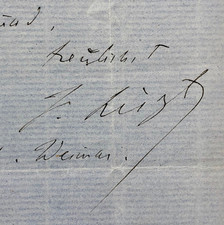 herzlichst
F. Liszt
Weimar.